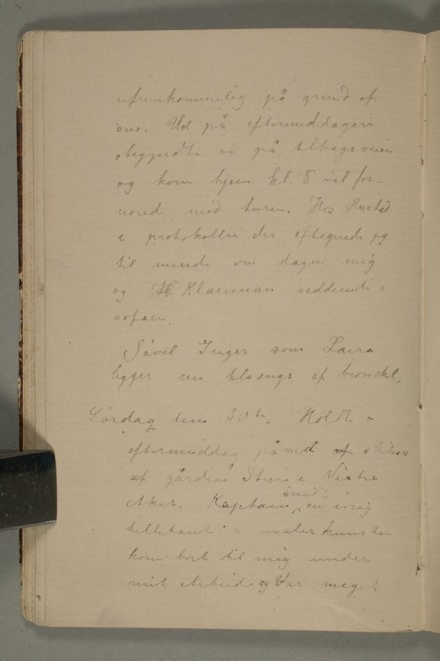 ufremkommelig på grund af
sne. Ud på eftermiddagen
begyndte vi på tilbageveien
og kom hjem kl. 8 vel for-
nøied med turen. Hos
i protokollen der aftegnede jeg
til minde om dagen mig
og H Klaennan siddende i
sofaen.
Såvel Inger som Laura
ligger nu tilsengs af bronckit.
Lørdag den 30te. Holdt i
eftermiddag på med
af gården i Vestre
Aker. Kaptein en ivrig
dilletant i malerkunsten
kom bort til mig under
mit arbeide og var meget